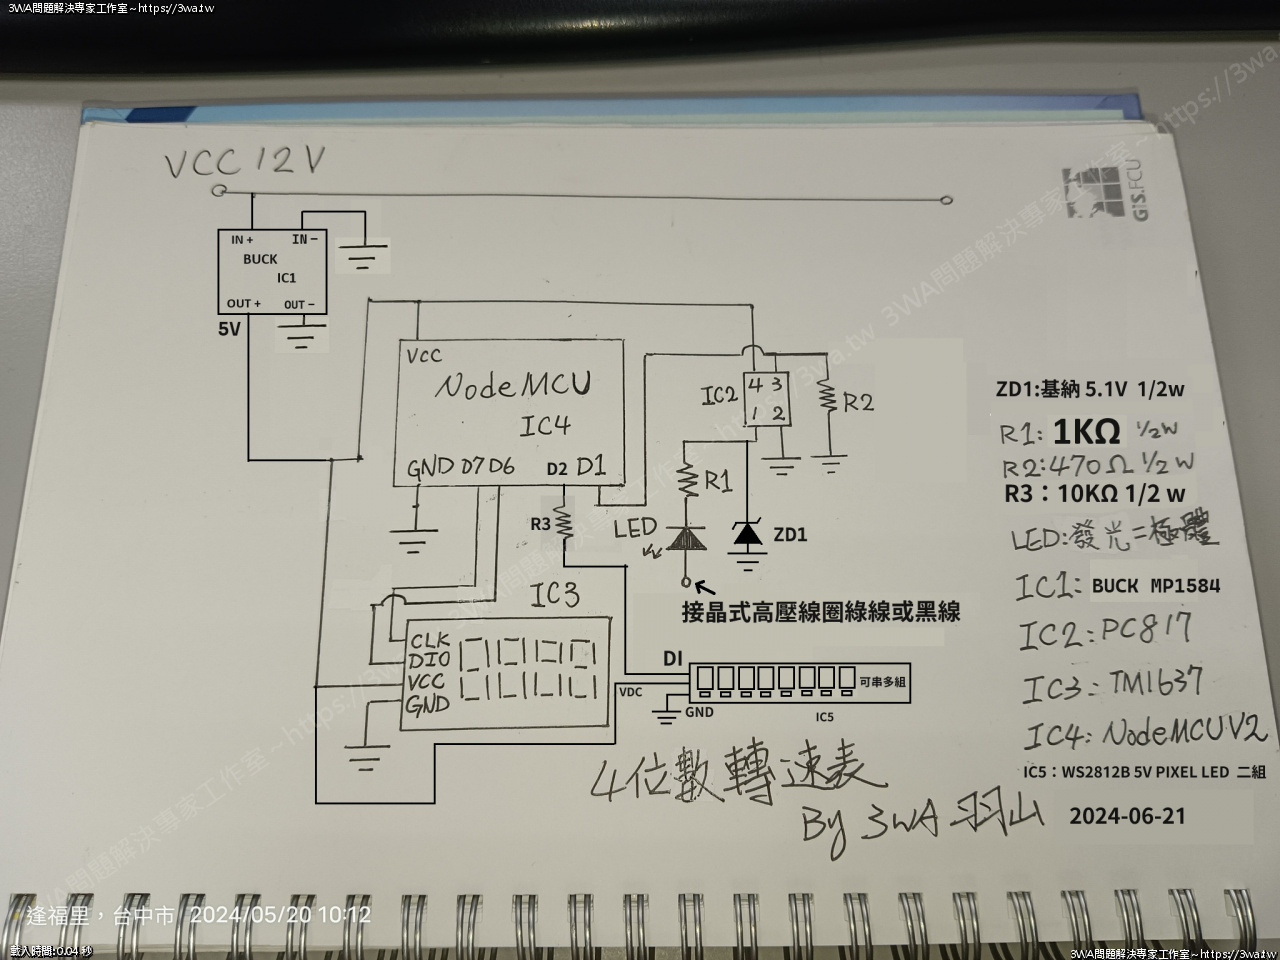 3WA問題解決專家工作室~https://3wa.tw
VCC 12V
GIS.FCU
IN + IN −
BUCK
IC1
OUT + OUT −
5V
VCC
NodeMCU
IC4
GND D7 D6 D2 D1
IC2
4 3
1 2
R2
R1
R3
LED
ZD1
接晶式高壓線圈綠線或黑線
IC3
CLK
DIO
VCC
GND
DI
VDC
GND
可串多組
IC5
ZD1:基納 5.1V 1/2w
R1: 1KΩ 1/2W
R2:470Ω 1/2W
R3:10KΩ 1/2 w
LED:發光二極體
IC1: BUCK MP1584
IC2:PC817
IC3:TM1637
IC4:NodeMCU V2
IC5:WS2812B 5V PIXEL LED 二組
4位數轉速表
By 3WA 羽山
2024-06-21
3WA問題解決專家工作室~https://3wa.tw 3WA問題解決專家工作室~https://3wa
3WA問題解決專家工作室~https://
逢福里,台中市 2024/05/20 10:12
載入時間:0.04 秒
3WA問題解決專家工作室~https://3wa.tw